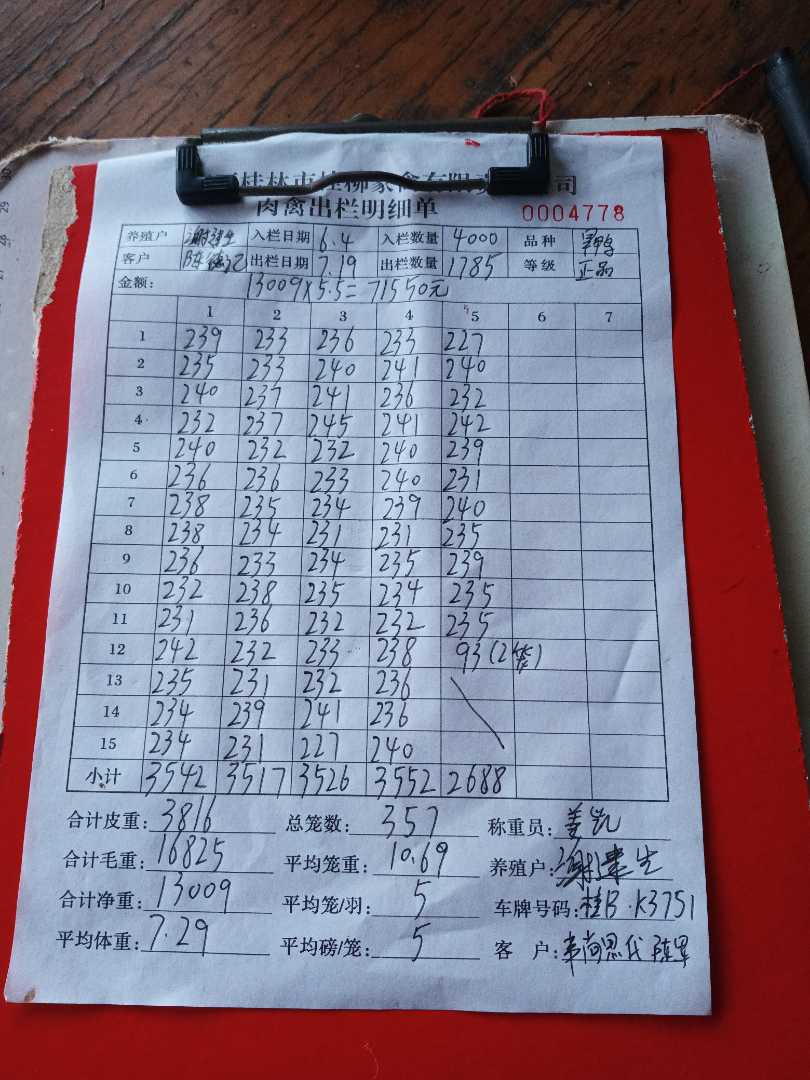 桂林市桂柳家禽有限 公司
肉禽出栏明细单 0004778
养殖户 谢建生 入栏日期 6.4 入栏数量 4000 品种
客户 陈 出栏日期 7.19 出栏数量 1785 等级 正品
金额: 13009×5.5=71550元
1 2 3 4 5 6 7
1 239 233 236 233 227
2 235 233 240 241 240
3 240 237 241 236 232
4 232 237 245 241 242
5 240 232 232 240 239
6 236 236 233 240 231
7 238 235 234 239 240
8 238 234 231 231 235
9 236 233 234 235 239
10 232 238 235 234 235
11 231 236 232 232 235
12 242 232 233 238 93(2笼)
13 235 231 232 236
14 234 239 241 236
15 234 231 227 240
小计 3542 3517 3526 3552 2688
合计皮重: 3816 总笼数: 357 称重员: 姜凯
合计毛重: 16825 平均笼重: 10.69 养殖户: 谢建生
合计净重: 13009 平均笼/羽: 5 车牌号码: 桂B·K3751
平均体重: 7.29 平均磅/笼: 5 客 户: